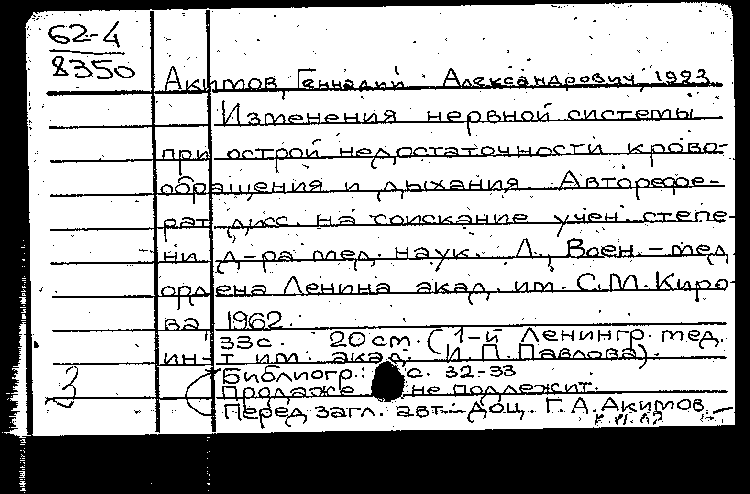 62-4
8350
Акимов, Геннадий Александрович, 1923
Изменения нервной системы
при острой недостаточности крово-
обращения и дыхания. Авторефе-
рат дисс. на соискание учен. степе-
ни д-ра мед. наук. Л., Воен.-мед
ордена Ленина акад. им. С.М. Киро-
ва, 1962.
33с. 20 см. (1-й Ленингр. мед.
ин-т им. акад. И. П. Павлова).
Библиогр.: с. 32-33
Продаже не подлежит.
Перед загл. авт.: доц. Г. А. Акимов.
3